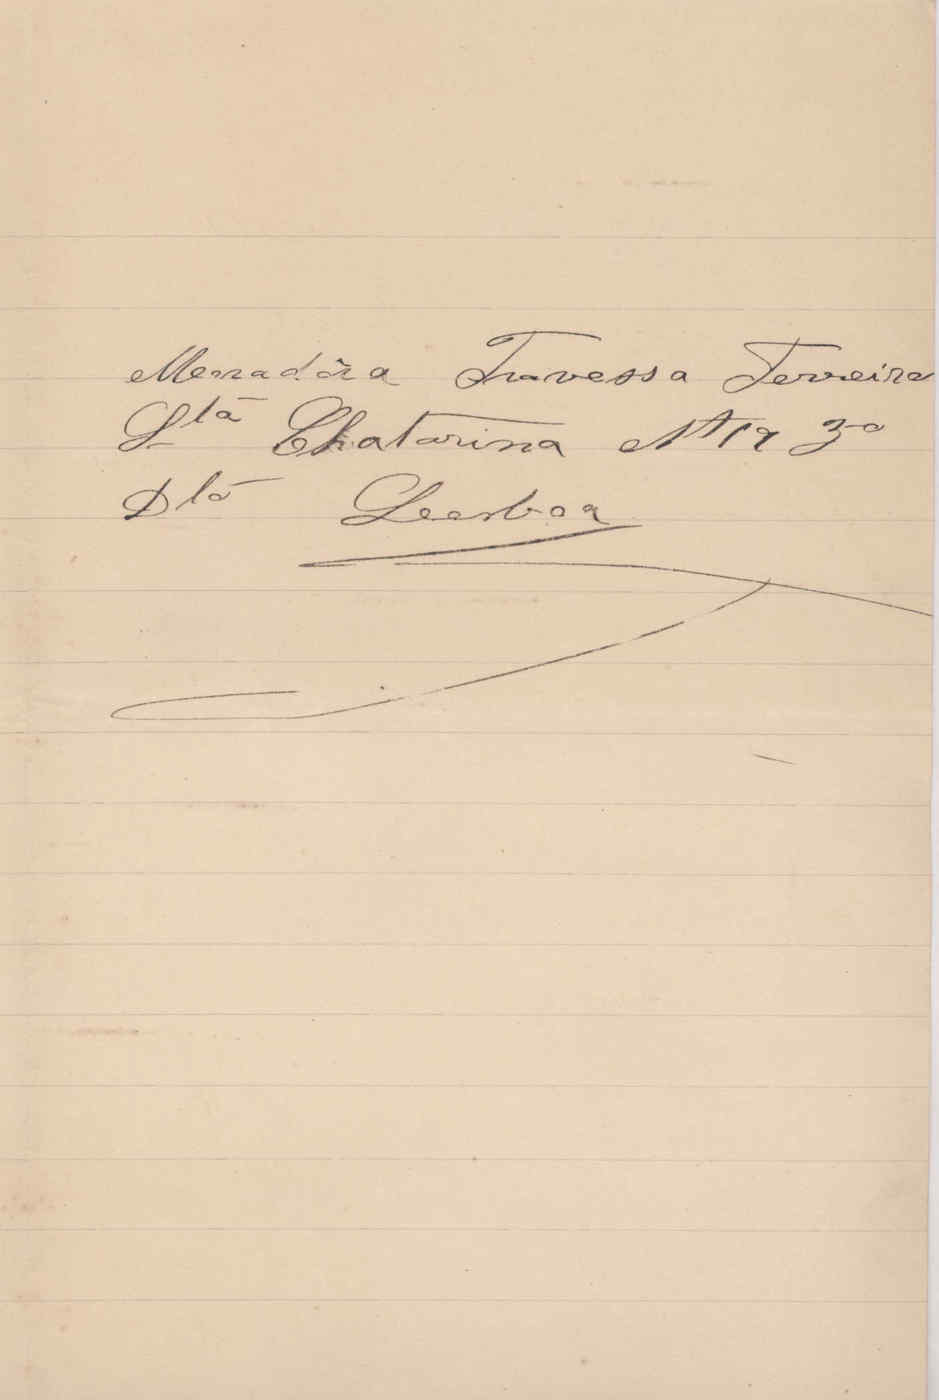 Meradôra Travessa Terreira
Stã Chatarina Nº 19 3º
Dtº Leesboa